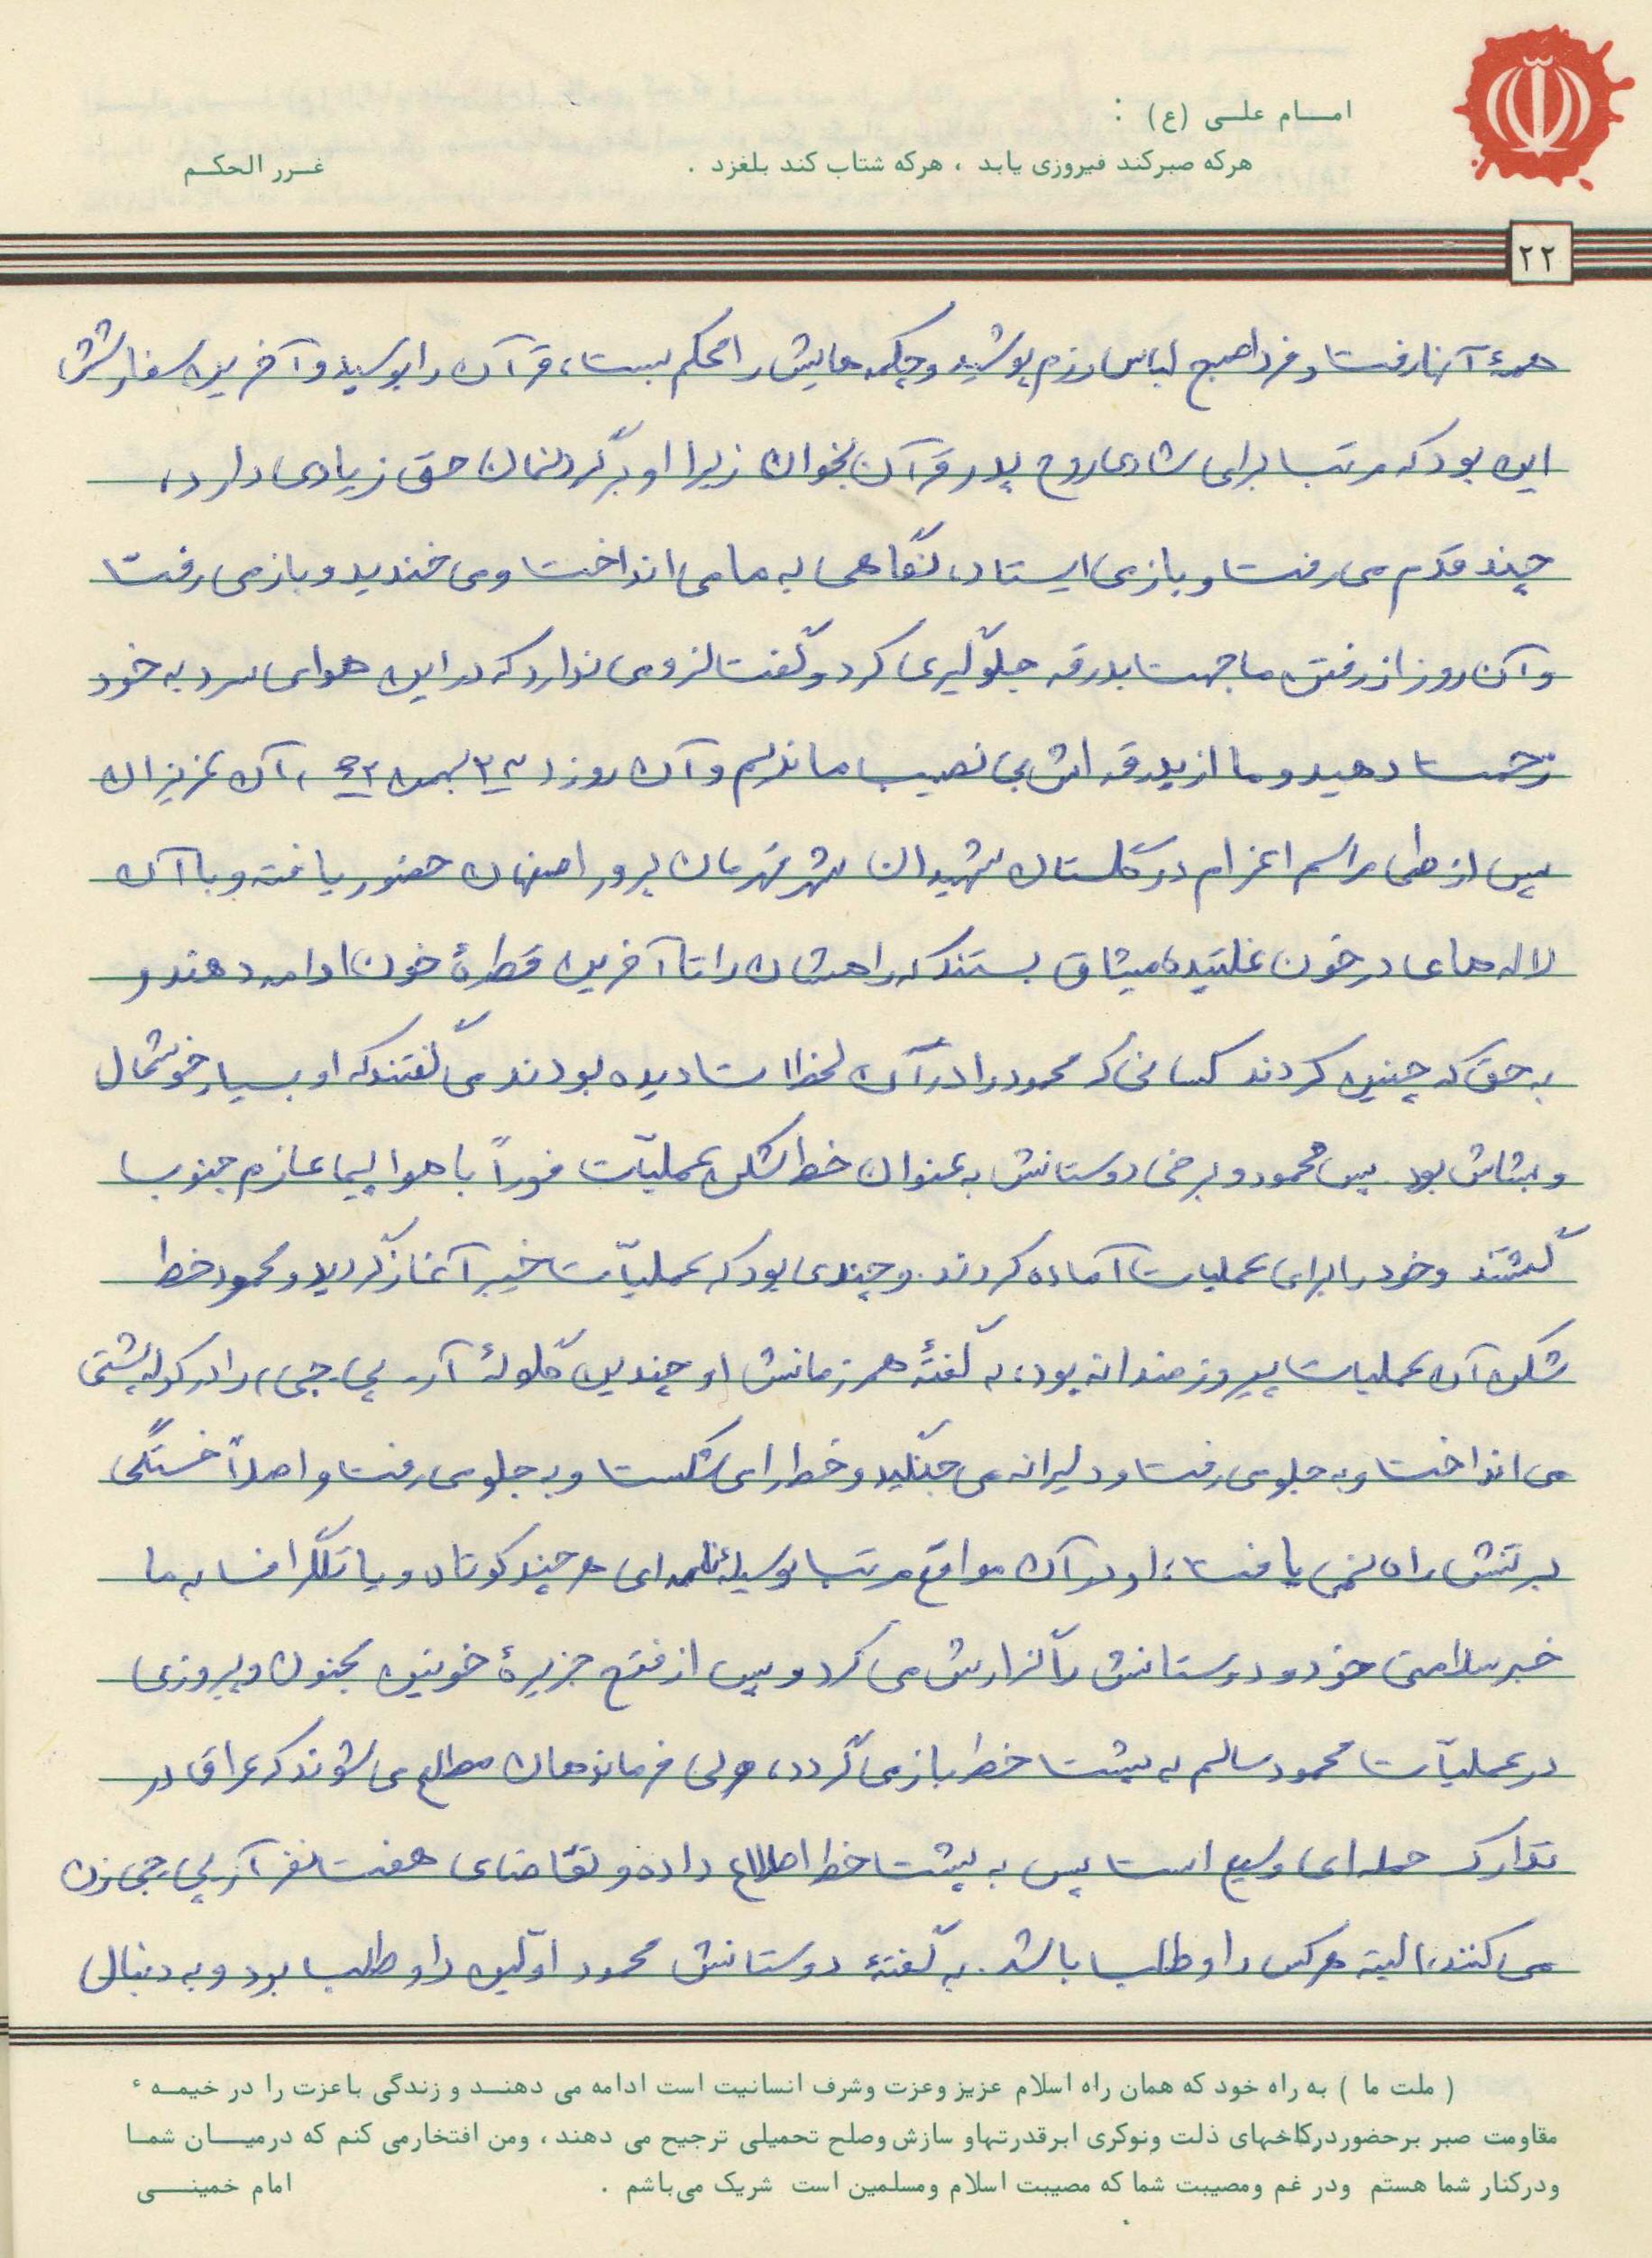 امام علی (ع) :
هرکه صبرکند فیروزی یابد ، هرکه شتاب کند بلغزد .
غرر الحکم
۲۲
همهٔ آنها رفت و فردا صبح لباس رزم پوشید و چکمه هایش را محکم بست، قرآن را بوسید و آخرین سفارشش
این بود که مرتب برای شادی روح پدر قرآن بخوان زیرا او برگردنمان حق زیادی دارد،
چند قدم می رفت و باز می ایستاد، نگاهی به ما می انداخت و می خندید و باز می رفت
و آن روز از رفتن ما جهت بدرقه جلوگیری کرد و گفت لزومی ندارد که در این هوای سرد به خود
زحمت دهید و ما از بدرقه اش بی نصیب ماندیم و آن روز ۲۳ بهمن ۶۲ ، آن عزیزان
پس از طی مراسم اعزام در گلستان شهیدان شهر قهرمان پرور اصفهان حضور یافته و با آن
لاله های در خون غلتیده میثاق بستند که راهشان را تا آخرین قطرهٔ خون ادامه دهند و
به حق که چنین کردند کسانی که محمود را در آن لحظات دیده بودند می گفتند که او بسیار خوشحال
و بشاش بود. پس محمود و برخی دوستانش به عنوان خط شکن عملیّات فوراً با هواپیما عازم جنوب
گشتند و خود را برای عملیات آماده کردند. و چندی بود که عملیّات خیبر آغاز گردید و محمود خط
شکن آن عملیات پیروزمندانه بود، به گفتهٔ همرزمانش او چندین گلولهٔ آر. پی. جی، را در کوله پشتی
می انداخت و به جلو می رفت و دلیرانه می جنگید و خط را می شکست و به جلو می رفت و اصلاً خستگی
بر تنش راه نمی یافت، او در آن مواقع مرتب بوسیلهٔ نامه ای هر چند کوتاه و یا تلگراف به ما
خبر سلامتی خود و دوستانش را گزارش می کرد و پس از فتح جزیرهٔ خونین مجنون و پیروزی
در عملیّات محمود سالم به پشت خط باز می گردد، ولی فرماندهان مطلع می شوند که عراق در
تدارک حمله ای وسیع است پس به پشت خط اطلاع داده و تقاضای هفت نفر آر پی. جی زن
می کنند، البته هر کس داوطلب باشد. به گفتهٔ دوستانش محمود اوّلین داوطلب بود و به دنبال
( ملت ما ) به راه خود که همان راه اسلام عزیز وعزت وشرف انسانیت است ادامه می دهند و زندگی باعزت را در خیمه ء
مقاومت صبر برحضوردرکاخهای ذلت ونوکری ابرقدرتهاو سازش وصلح تحمیلی ترجیح می دهند ، ومن افتخارمی کنم که درمیان شما
ودرکنار شما هستم ودر غم ومصیبت شما که مصیبت اسلام ومسلمین است شریک می‌باشم .
امام خمینی